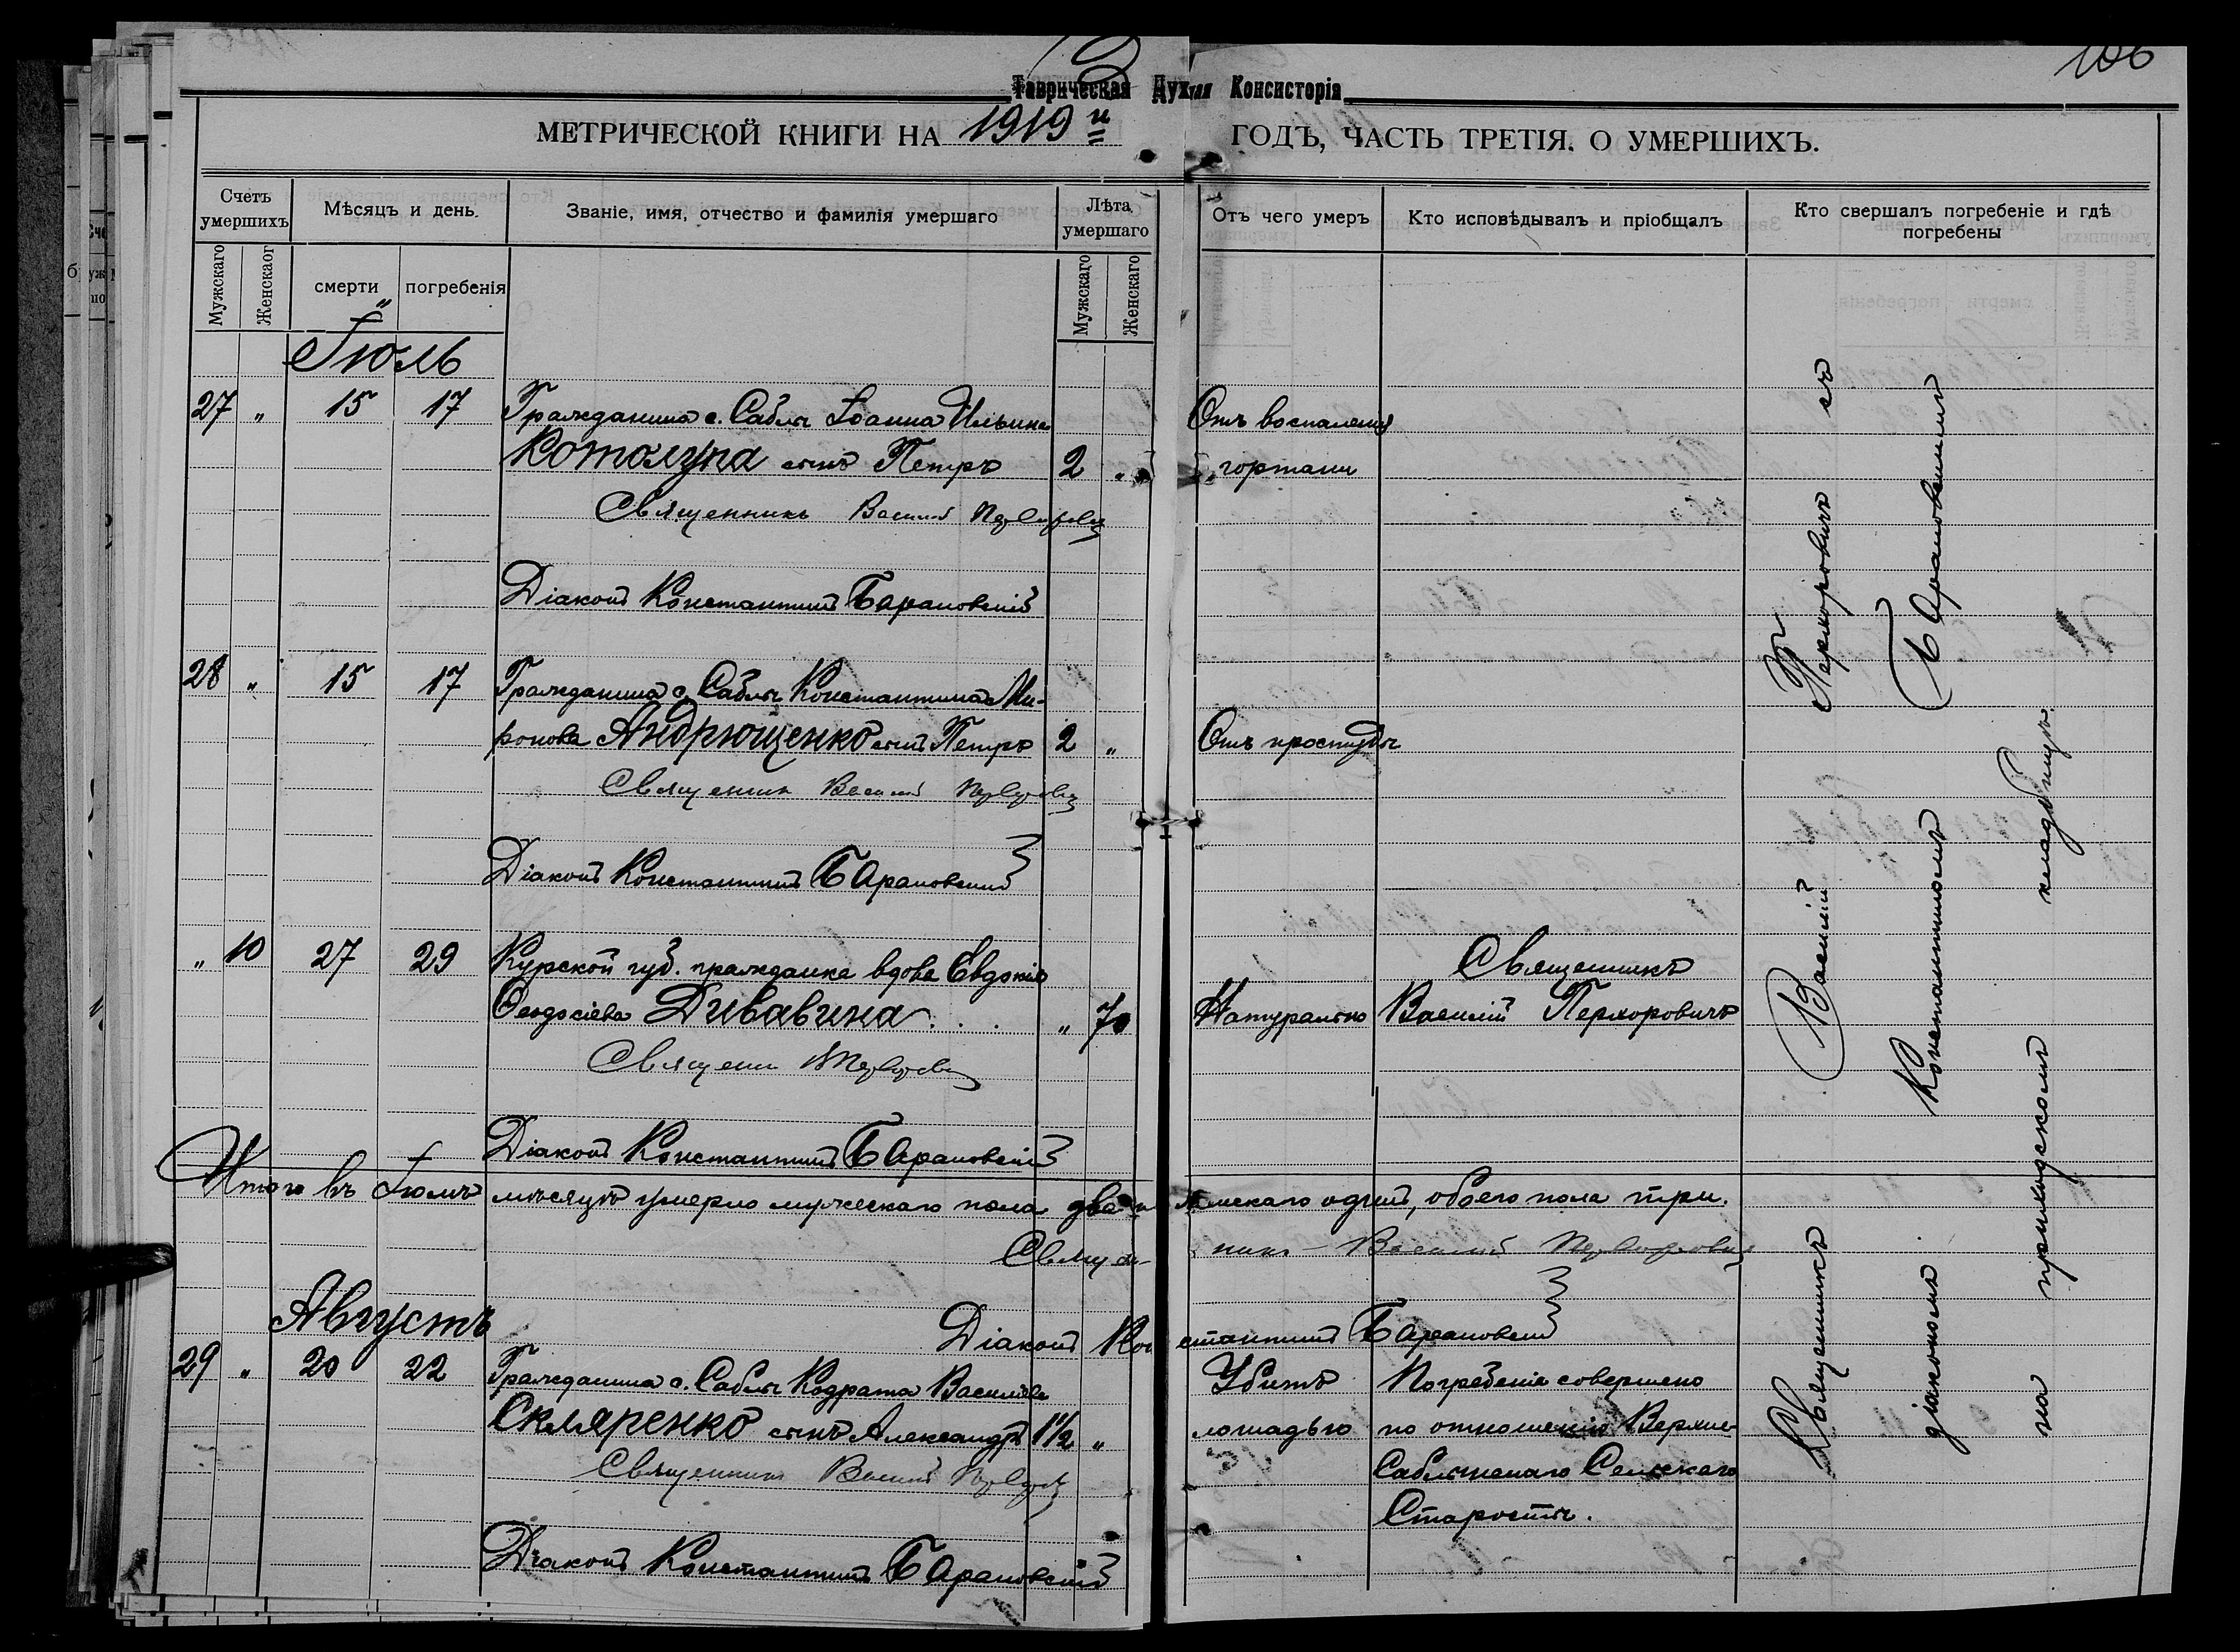 106
Таврическая Дух‑ная Консисторія
МЕТРИЧЕСКОЙ КНИГИ НА 1919й ГОДЪ, ЧАСТЬ ТРЕТІЯ. О УМЕРШИХЪ.
Счетъ умершихъ
Мѣсяцъ и день.
Званіе, имя, отчество и фамилія умершаго
Лѣта умершаго
Отъ чего умеръ
Кто исповѣдывалъ и пріобщалъ
Кто свершалъ погребеніе и гдѣ погребены
Мужскаго
Женскаог
смерти
погребенія
Мужскаго
Женскаго
Іюль
27 " 15 17 Гражданина с. Саблы Іоанна Ильина Отъ воспаленія
Котолупа сынъ Петръ 2 " гортани
Священникъ Василий
Діаконъ Константинъ Барановскій
28 " 15 17 Гражданина с. Саблы Константина Ми-
ронова Андрющенко сынъ Петръ 2 " Отъ простуды
Священник Василий
Діаконъ Константинъ Барановскій
" 10 27 29 Курской губ. гражданка вдова Евдокія Священникъ
Ѳеодосіева Дивавина . . . " 70 Натурально Василій
Священ
Діаконъ Константинъ Барановскій
Итого въ Іюлѣ мѣсяцѣ умерло мужескаго пола два и женскаго одинъ, обоего пола три.
Священникъ - Василий
Діаконъ Константинъ Барановскій
Августъ
29 " 20 22 Гражданина с. Саблы Кодрата Василіева Убитъ Погребеніе совершено
Скляренко сынъ Александръ 1 1/2 " лошадью по отношенію Верхне-
Священник Василий Саблынскаго Сельскаго
Старосты.
Діаконъ Константинъ Барановскій
Священникъ Василій съ
діакономъ Константиномъ Барановскимъ
на приходскомъ кладбищѣ.